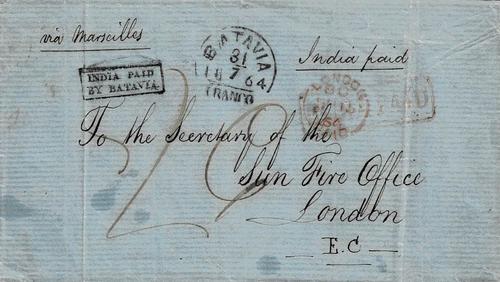 via Marseilles
BATAVIA
31
7 64
FRANCO
India paid
INDIA PAID
BY BATAVIA
LONDON
PAID
To the Secretary of the
Sun Fire Office
London
E.C